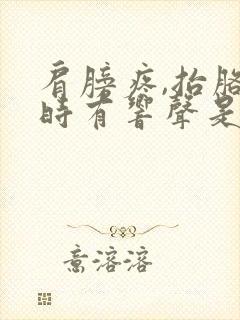 肩膀疼,抬胳
時有響聲是
意溶溶